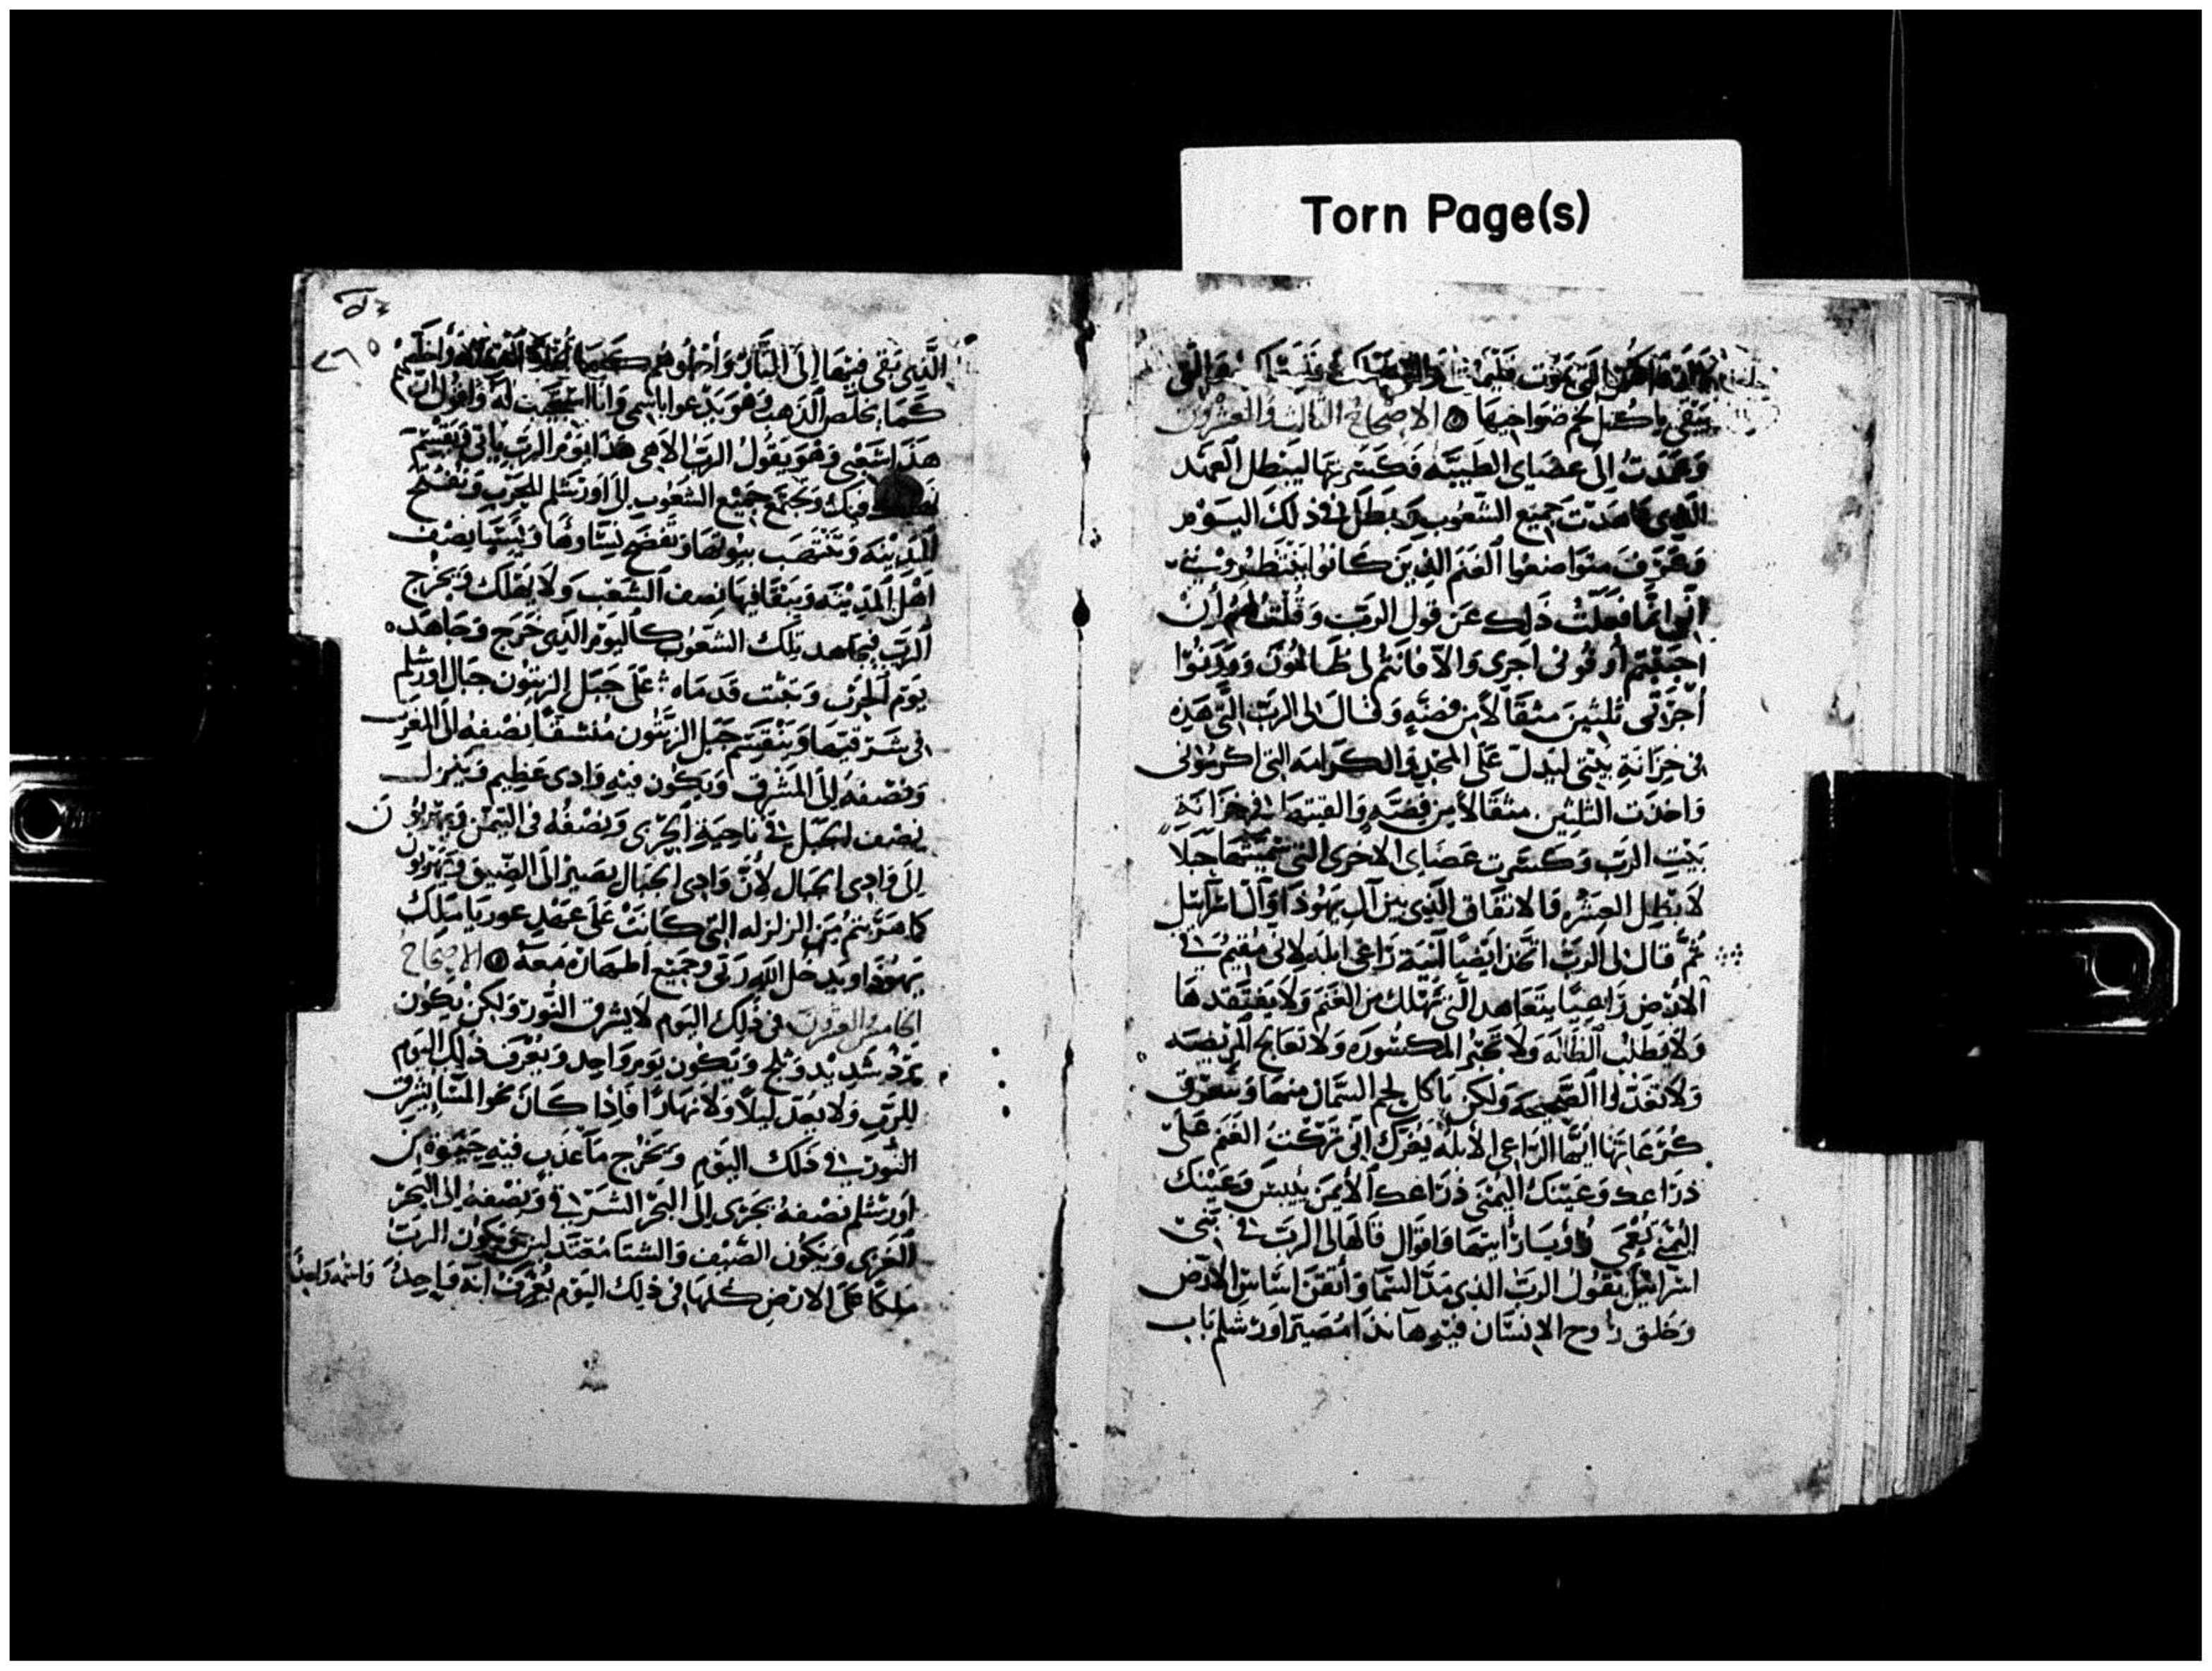 Torn Page(s)
يبقى ياكل لحم ضواحبها الاصحاح الثالث والعشرون
وعمدت الى عصاى الطيبه فكسرتها ليبطل العهد
الذى عاهدت جميع الشعوب وبطل فى ذلك اليوم
وعرف متواضعوا الغنم الذين كانوا ينتظرونى
انى انما فعلت ذلك عن قول الرب وقلت لهم ان
احببتم أوفونى اجرى والا فانتم لى ظالمون ووزنوا
أجرتى ثلثين مثقالا من فضه وقال لى الرب التى هذه
فى خزانة بيتى ليدل على المجد والكرامه التى اكرمونى
واخذت الثلثين مثقالا من فضه والقيتها فى خزانة
بيت الرب وكسرت عصاى الاخرى التى سميتها حبلا
لابطل العشره والاتفاق الذى بين آل يهوذا وآل اسرآئيل
ثم قال لى الرب اتخذ ايضا آنية راعى ابله لانى مقيم فى
الارض راعيا يتعاهد التى تهلك من الغنم ولا يفتقدها
ولا يطلب الظاله ولا يجبر المكسوره ولا يعالج المريضه
ولا يغذى الصحيحه ولكن ياكل لحم السمان منها ويتعرق
كرعانها ايها الراعى الابله يغرك انى تركت الغنم على
ذراعك وعينك اليمنى ذراعك الأيمن ييبس وعينك
اليمنى تعمى واقوال قالها لى الرب فى بنى
اسرائيل يقول الرب الذى مد السما وأتقن اساس الارض
وخلق روح الانسان فيه هانذا مصير اورشلم باب
٢٦٥
الذى بقى فيها الى النار
كما يخلص الذهب وهو يدعوا باسمى وانا استجيب له واقول ان
هذا شعبى وهو يقول الرب الاهى هذا يوم الرب ياتى ويقسم
فيك وتجمع جميع الشعوب الى اورشلم للحرب وتفتح
المدينه وتنتهب بيوتها وتفضح نساوها ويسبا نصف
اهل المدينه ويبقا فيها نصف الشعب ولا يهلك ويخرج
الرب فيجاهد تلك الشعوب كاليوم الذى خرج وجاهد
يوم الحرب وتثبت قدماه على جبل الزيتون حبال اورشلم
فى شرقيتها وينقسم جبل الزيتون منشقا نصفه الى المغرب
ونصفه الى المشرق ويكون فيه وادى عظيم وينزل
نصف الجبل فى ناحية الجربى ونصفه فى التيمن ويهربون
الى وادى الجبال لأن وادى الجبال يصير الى الضيق ويهربون
كما هربتم من الزلزله التى كانت على عهد عوريا ملك
يهوذا ويدخل الله ربى وجميع اطهاره معه الاصحاح
الخامس والعشرون فى ذلك اليوم لا يشرق النور ولكن يكون
برد شديد وثلج وتكون يوم واحد ويعرف ذلك اليوم
للرب ولا يعد ليلا ولا نهارا فاذا كان نحو المسا يشرق
النور فى ذلك اليوم ويخرج ما عذب فيه حيوة من
اورشلم نصفه يجرى الى البحر الشرقى ونصفه الى البحر
الغربى ويكون الصيف والشتا معتدلين ويكون الرب
ملكا على الارض كلها فى ذلك اليوم يعرف انه واحد واسمه واحدا